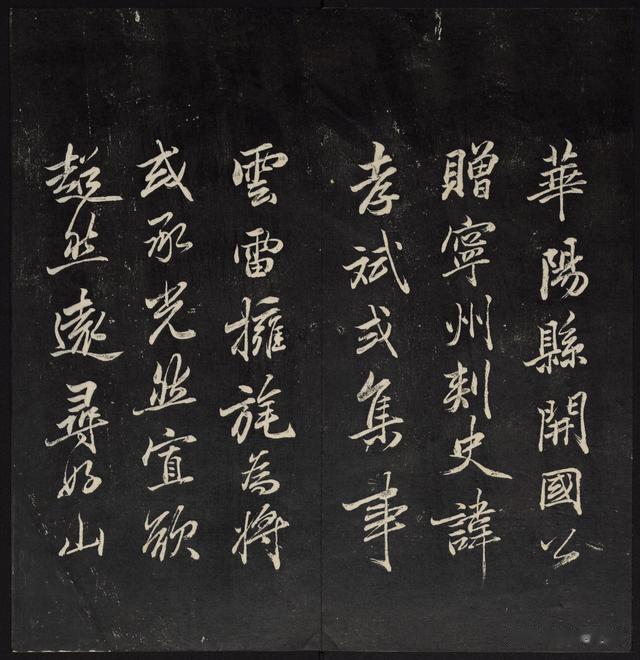 華陽縣開國公
贈寧州刺史諱
孝斌或集事
雲雷擁旄為將
或承光然宜欲
超然遠尋好山